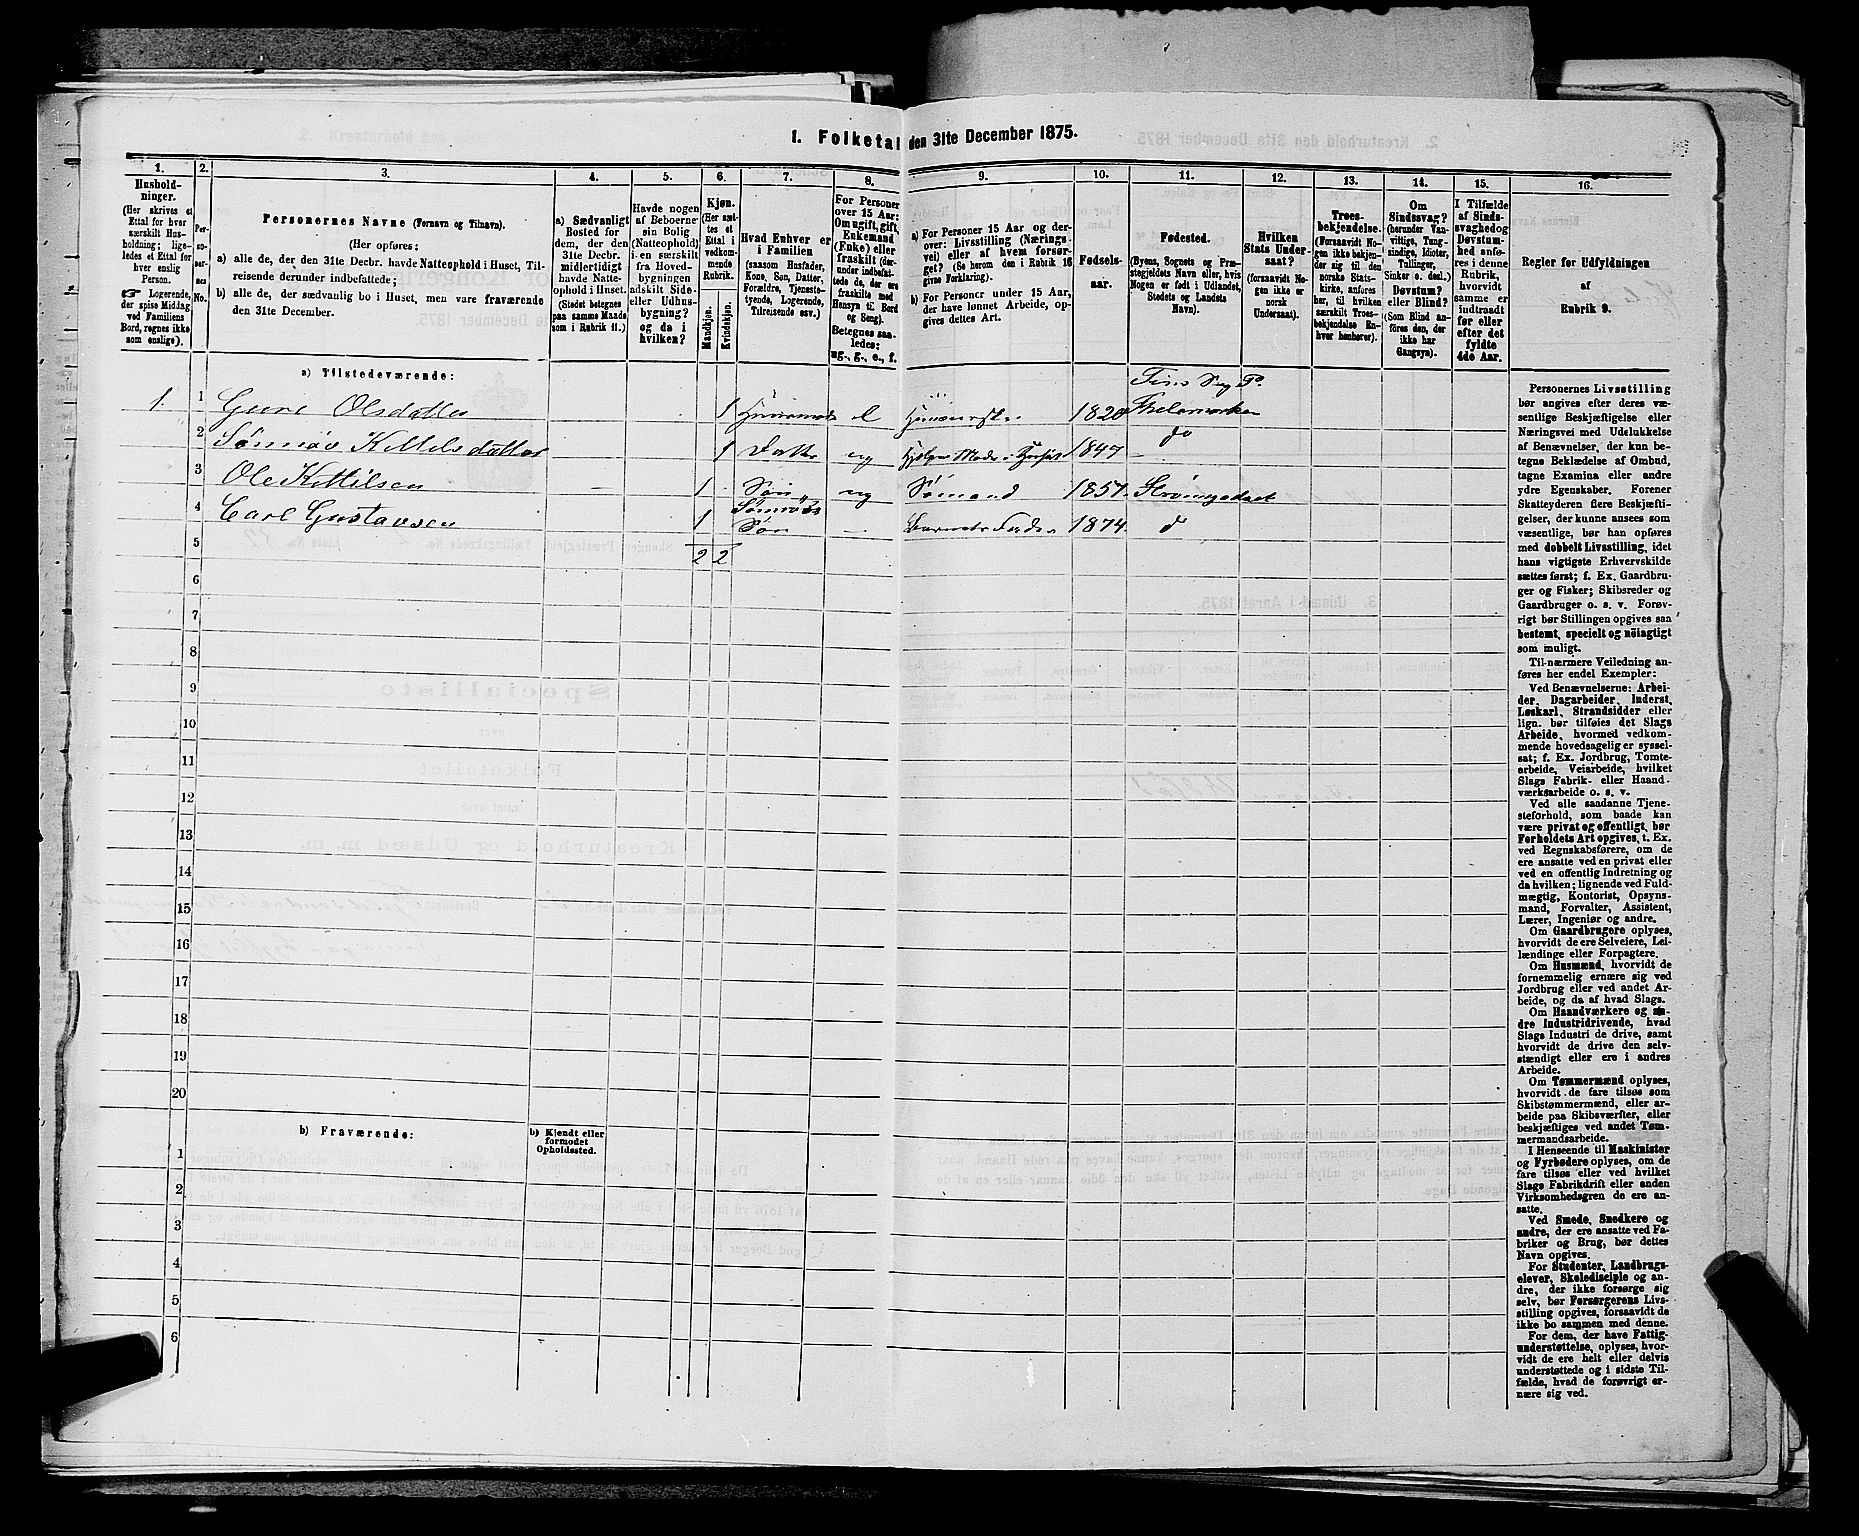 1. Folketal den 31te December 1875.
1.
2.
3.
4.
5.
6.
7.
8.
9.
10.
11.
12.
13.
14.
15.
16.
Hushold-
ninger.
(Her skrives et
Ettal for hver
særskilt Hus-
holdning; lige-
ledes et Ettal for
hver enslig
Person.
☞ Logerende,
der spise Middag
ved Familiens
Bord, regnes ikke
som enslige).
Per-
so-
ner-
nes
No.
Personernes Navne (Fornavn og Tilnavn).
(Her opføres:
a) alle de, der den 31te Decbr. havde Natteophold i Huset, Til-
reisende derunder indbefattede;
b) alle de, der sædvanlig bo i Huset, men vare fraværende
den 31te December.
a) Sædvanligt
Bosted for
dem, der den
31te Decbr.
midlertidigt
havde Natte-
ophold i Huset.
(Stedet betegnes
paa samme Maade
som i Rubrik 11.)
Havde nogen
af Beboerne
sin Bolig
(Natteophold)
i en særskilt
fra Hoved-
bygningen
adskilt Side-
eller Udhus-
bygning?
og da i
hvilken?
Kjøn.
(Her sæt-
tes et
Ettal i
vedkom-
mende
Rubrik.
Mandkjøn.
Kvindekjøn.
Hvad Enhver er
i Familien
(saasom Husfader,
Kone, Søn, Datter,
Forældre, Tjeneste-
tyende, Logerende,
Tilreisende osv.)
For Personer
over 15 Aar:
Om ugift, gift,
Enkemand
(Enke) eller
fraskilt (der-
under indbefat-
tede de, der ere
fraskilte med
Hensyn til Bord
og Seng).
Betegnes saa-
ledes:
ug., g., e., f.
a) For Personer 15 Aar og der-
over: Livsstilling (Nærings-
vei) eller af hvem forsør-
get? (Se herom den i Rubrik 16
givne Forklaring).
b) For Personer under 15 Aar,
der have lønnet Arbeide, op-
gives dettes Art.
Fødsels-
aar.
Fødested.
(Byens, Sognets og Præ-
stegjeldets Navn eller, hvis
Nogen er født i Udlandet,
Stedets og Landets
Navn).
Hvilken
Stats Under-
saat?
(forsaavidt No-
gen ikke er
norsk
Undersaat).
Troes-
bekjendelse.
(Forsaavidt No-
gen ikke bekjen-
der sig til den
norske Stats-
kirke, anføres
her, til hvilken
særskilt Troes-
bekjendelse En-
hver henhører).
Om
Sindssvag?
(herunder Van-
vittige, Tung-
sindige, Idioter,
Tullinger,
Sinker o. desl.)
Døvstum?
eller Blind?
(Som Blind an-
føres den, der
ikke har
Gangsyn).
I Tilfælde
af Sinds-
svaghed og
Døvstum-
hed anfø-
res i denne
Rubrik,
hvorvidt
samme er
indtraadt
før eller
efter det
fyldte
4de Aar.
Regler for Udfyldningen
af
Rubrik 9.
a) Tilstedeværende:
Tins Sog P.
1. 1 Gure Olsdatter 1 e 1820 Thelemarken
2 Sønnøv Kittelsdatter 1 Datter ug 1847 do
3 Ole Kittilsen 1 Søn ug Sømand 1857
4 Carl Gustavsen 1 Sønnøvs Søn Barnets Fader 1874 d
5 2 2
6
7
8
9
10
11
12
13
14
15
16
17
18
19
20
b) Fraværende:
b) Kjendt eller
formodet
Opholdssted.
1
2
3
4
5
6
Personernes Livsstilling
bør angives efter deres væ-
sentlige Beskjæftigelse eller
Næringsvei med Udelukkelse
af Benævnelser, der kun be-
tegne Beklædelse af Ombud,
tagne Examina eller andre
ydre Egenskaber. Forener
Skatteyderen flere Beskjæfti-
gelser, der kunne ansees som
væsentlige, bør han opføres
med dobbelt Livsstilling, idet
hans vigtigste Erhvervskilde
sættes først; f. Ex. Gaardbru-
ger og Fisker; Skibsreder og
Gaardbruger o. s. v. Forøv-
rigt bør Stillingen opgives saa
bestemt, specielt og nöiagtigt
som muligt.
Til nærmere Veiledning an-
føres her endel Exempler:
Ved Benævnelserne: Arbei-
der, Dagarbeider, Inderst,
Løskarl, Strandsidder eller
lign. bør tilføies det Slags
Arbeide, hvormed vedkom-
mende hovedsagelig er syssel-
sat; f. Ex. Jordbrug, Tomte-
arbeide, Veiarbeide, hvilket
Slags Fabrik- eller Haand-
værksarbeide o. s. v.
Ved alle saadanne Tjene-
steforhold, som baade kan
være privat og offentligt, bør
Forholdets Art opgives, t. Ex.
ved Regnskabsførere, om de
ere ansatte ved en privat eller
ved en offentlig Indretning og
da hvilken; lignende ved Fuld-
mægtig, Kontorist, Opsyns-
mand, Forvalter, Assistent,
Lærer, Ingeniør og andre.
Om Gaardbrugere oplyses,
hvorvidt de ere Selveiere, Lei-
lændinge eller Forpagtere.
Om Husmænd, hvorvidt de
fornemmelig ernære sig ved
Jordbrug eller ved andet Ar-
beide, og da af hvad Slags.
Om Haandværkere og an-
dre Industridrivende, hvad
Slags Industri de drive, samt
hvorvidt de drive den selv-
stændigt eller ere i andres
Arbeide.
Om Tømmermænd oplyses,
hvorvidt de fare tilsøs som
Skibstømmermænd, eller ar-
beide paa Skibsværfter, eller
beskjæftiges ved andet Tøm-
mermandsarbeide.
I Henseende til Maskinister
og Fyrbødere oplyses, om de
fare tilsøs eller ved hvilket
Slags Fabrikdrift eller anden
Virksomhedsgren de ere an-
satte.
Ved Smede, Snedkere og
andre, der ere ansatte ved Fa-
briker og Brug, bør dettes
Navn opgives.
For Studenter, Landbrugs-
elever, Skoledisciple og an-
dre, der ikke forsørge sig
selv, bør Forsørgerens Livs-
stilling opgives, forsaavidt de
ikke bo sammen med denne.
For dem, der have Fattig-
understøttelse, oplyses, hvor-
vidt de ere helt eller delvis
understøttede og i sidste Til-
fælde, hvad de forøvrigt er-
nære sig ved.